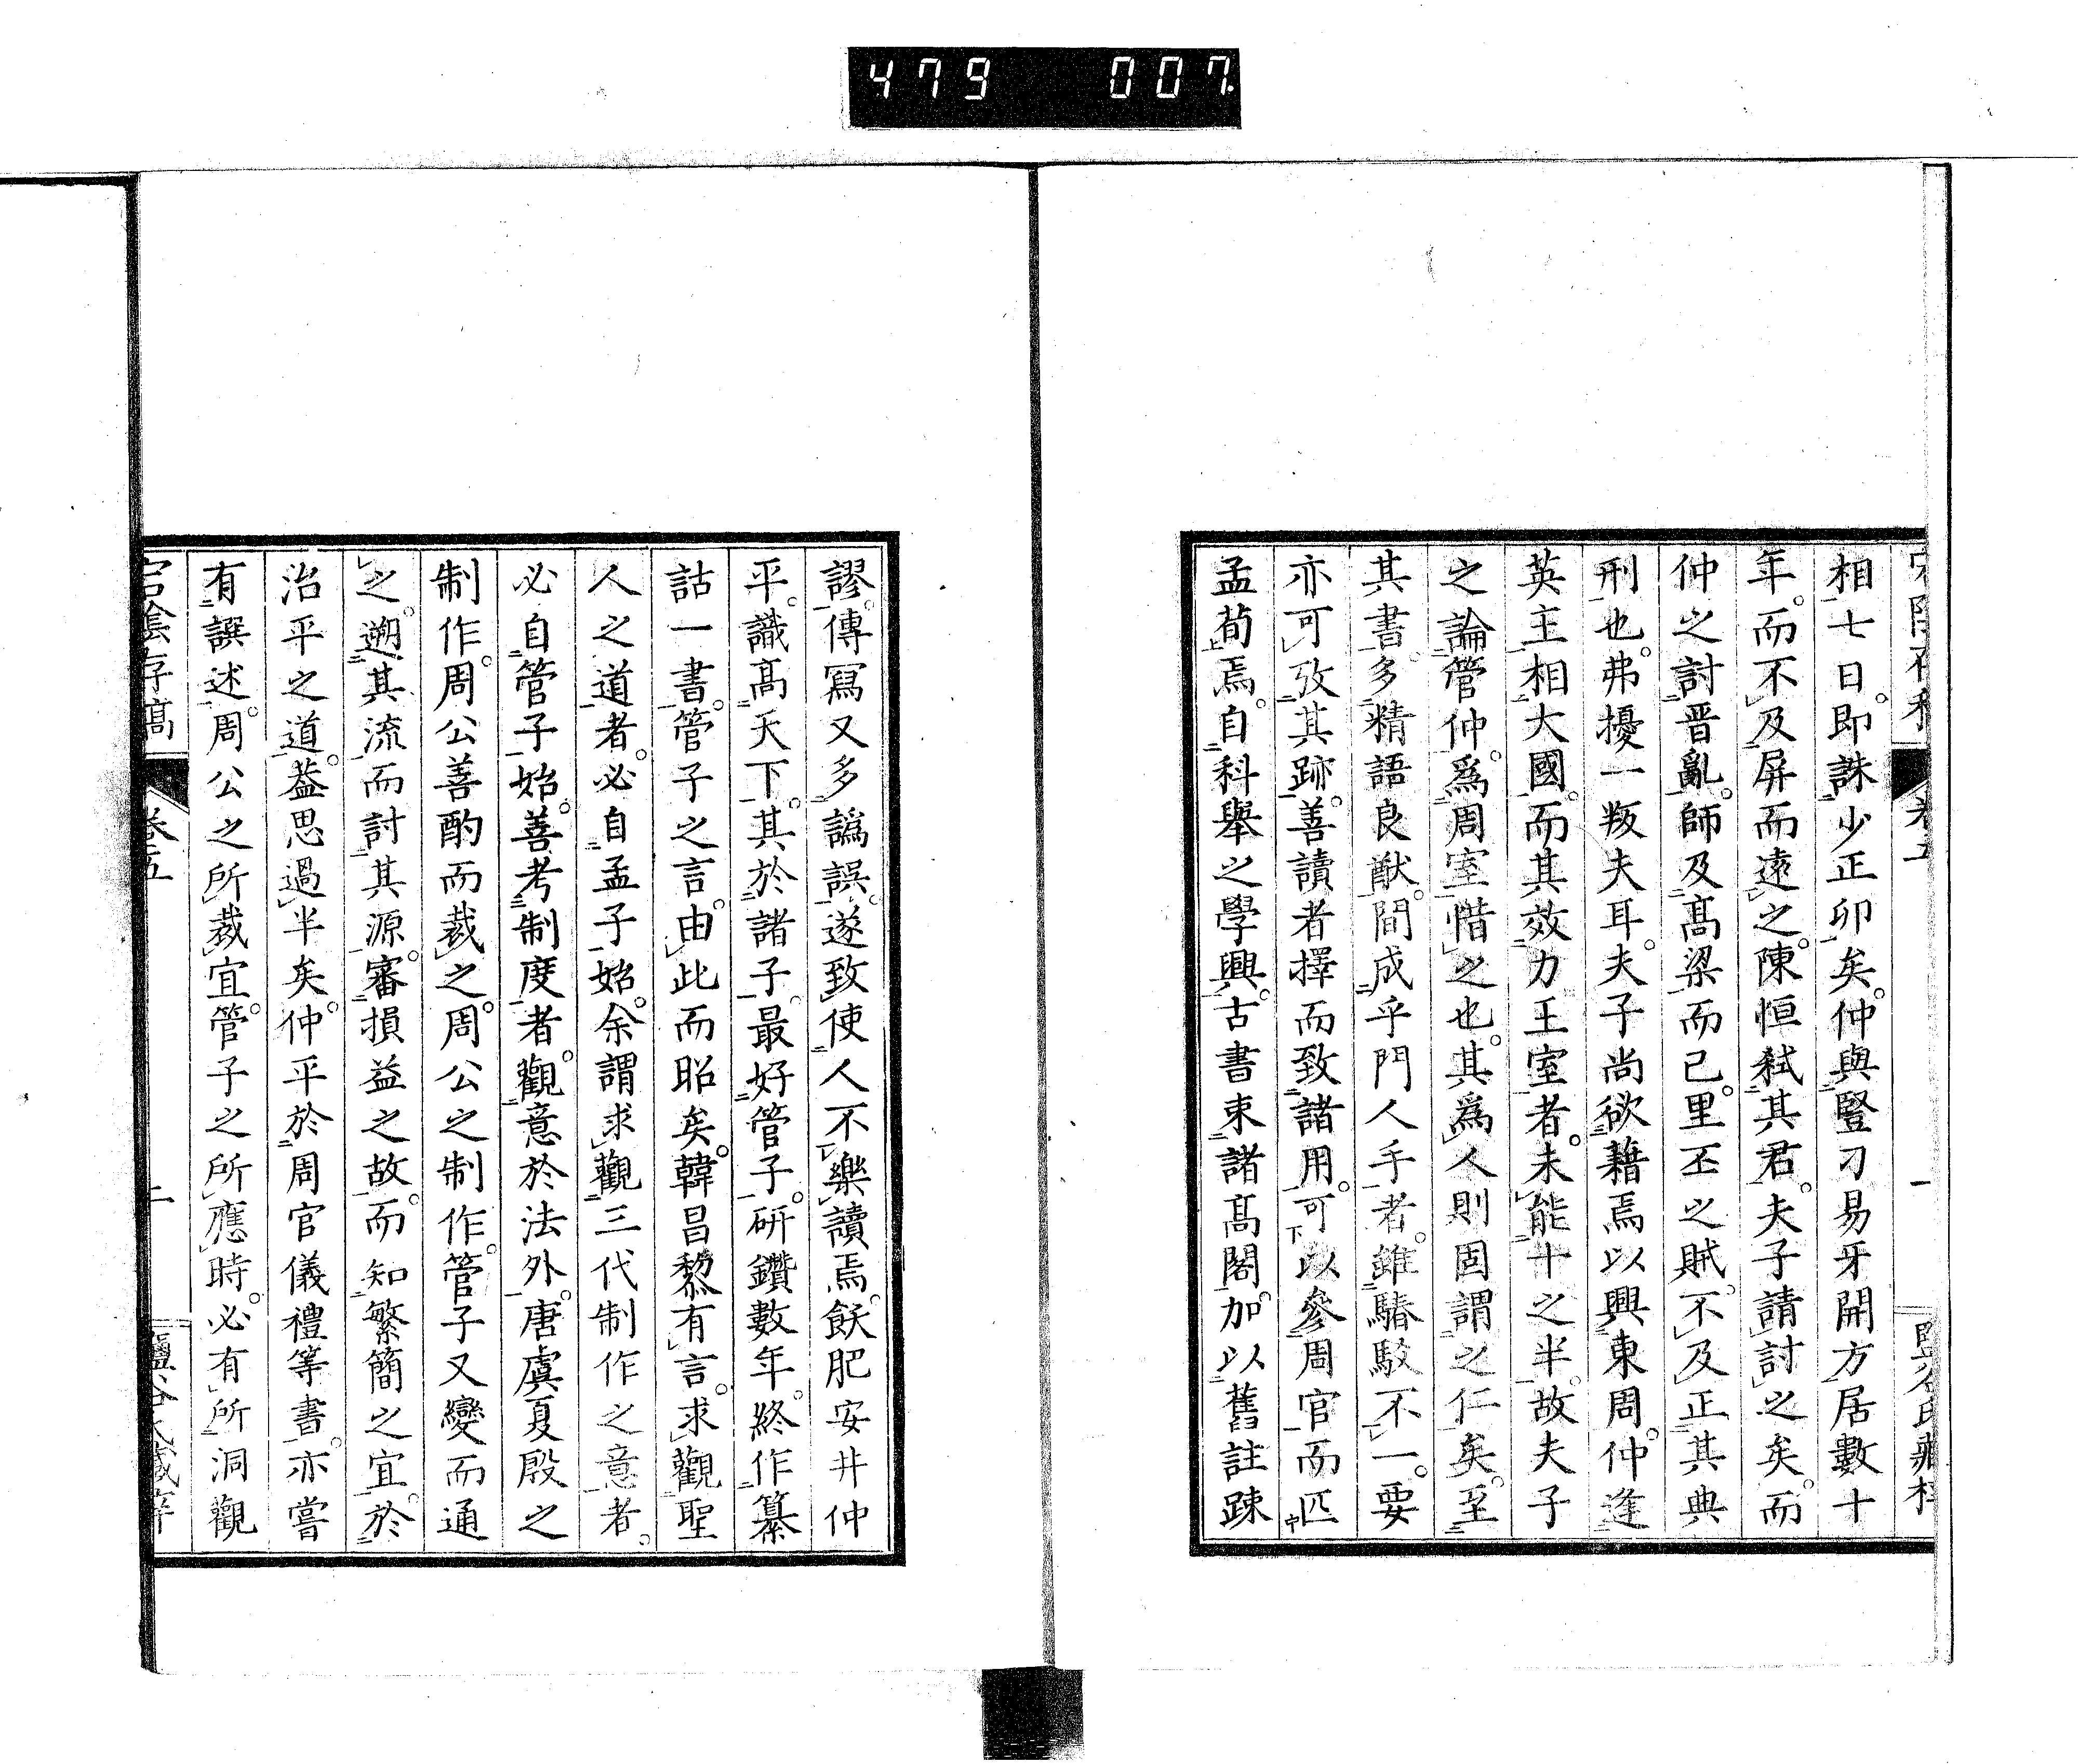 479 007
相七日。即誅少正卯矣。仲與豎刁易牙開方居數十
年。而不及屏而遠之。陳恒弑其君。夫子請討之矣。而
仲之討晋亂。師及高梁而已。里丕之賊。不及正其典
刑也。弗擾一叛夫耳。夫子尚欲藉焉以興東周。仲逢
英主相大國。而其效力王室者。未能十之半。故夫子
之論管仲。爲周室惜之也。其爲人則固謂之仁矣。至
其書。多精語良猷。間成乎門人手者。雖騞駁不一。要
亦可攷其跡。善讀者擇而致諸用。可以參周官而匹
孟荀焉。自科舉之學興。古書束諸高閣。加以舊註踈
謬。傳寫又多譌誤。遂致使人不樂讀焉。飫肥安井仲
平。識高天下。其於諸子。最好管子。研鑽數年。終作纂
詁一書。管子之言。由此而昭矣。韓昌黎有言。求觀聖
人之道者。必自孟子始。余謂求觀三代制作之意者。
必自管子始。善考制度者。觀意於法外。唐虞夏殷之
制作。周公善酌而裁之。周公之制作。管子又變而通
之。遡其流而討其源。審損益之故。而知繁簡之宜。於
治平之道。葢思過半矣。仲平於周官儀禮等書。亦嘗
有譔述。周公之所裁宜。管子之所應時。必有所洞觀
宕陰存稿 卷五 二